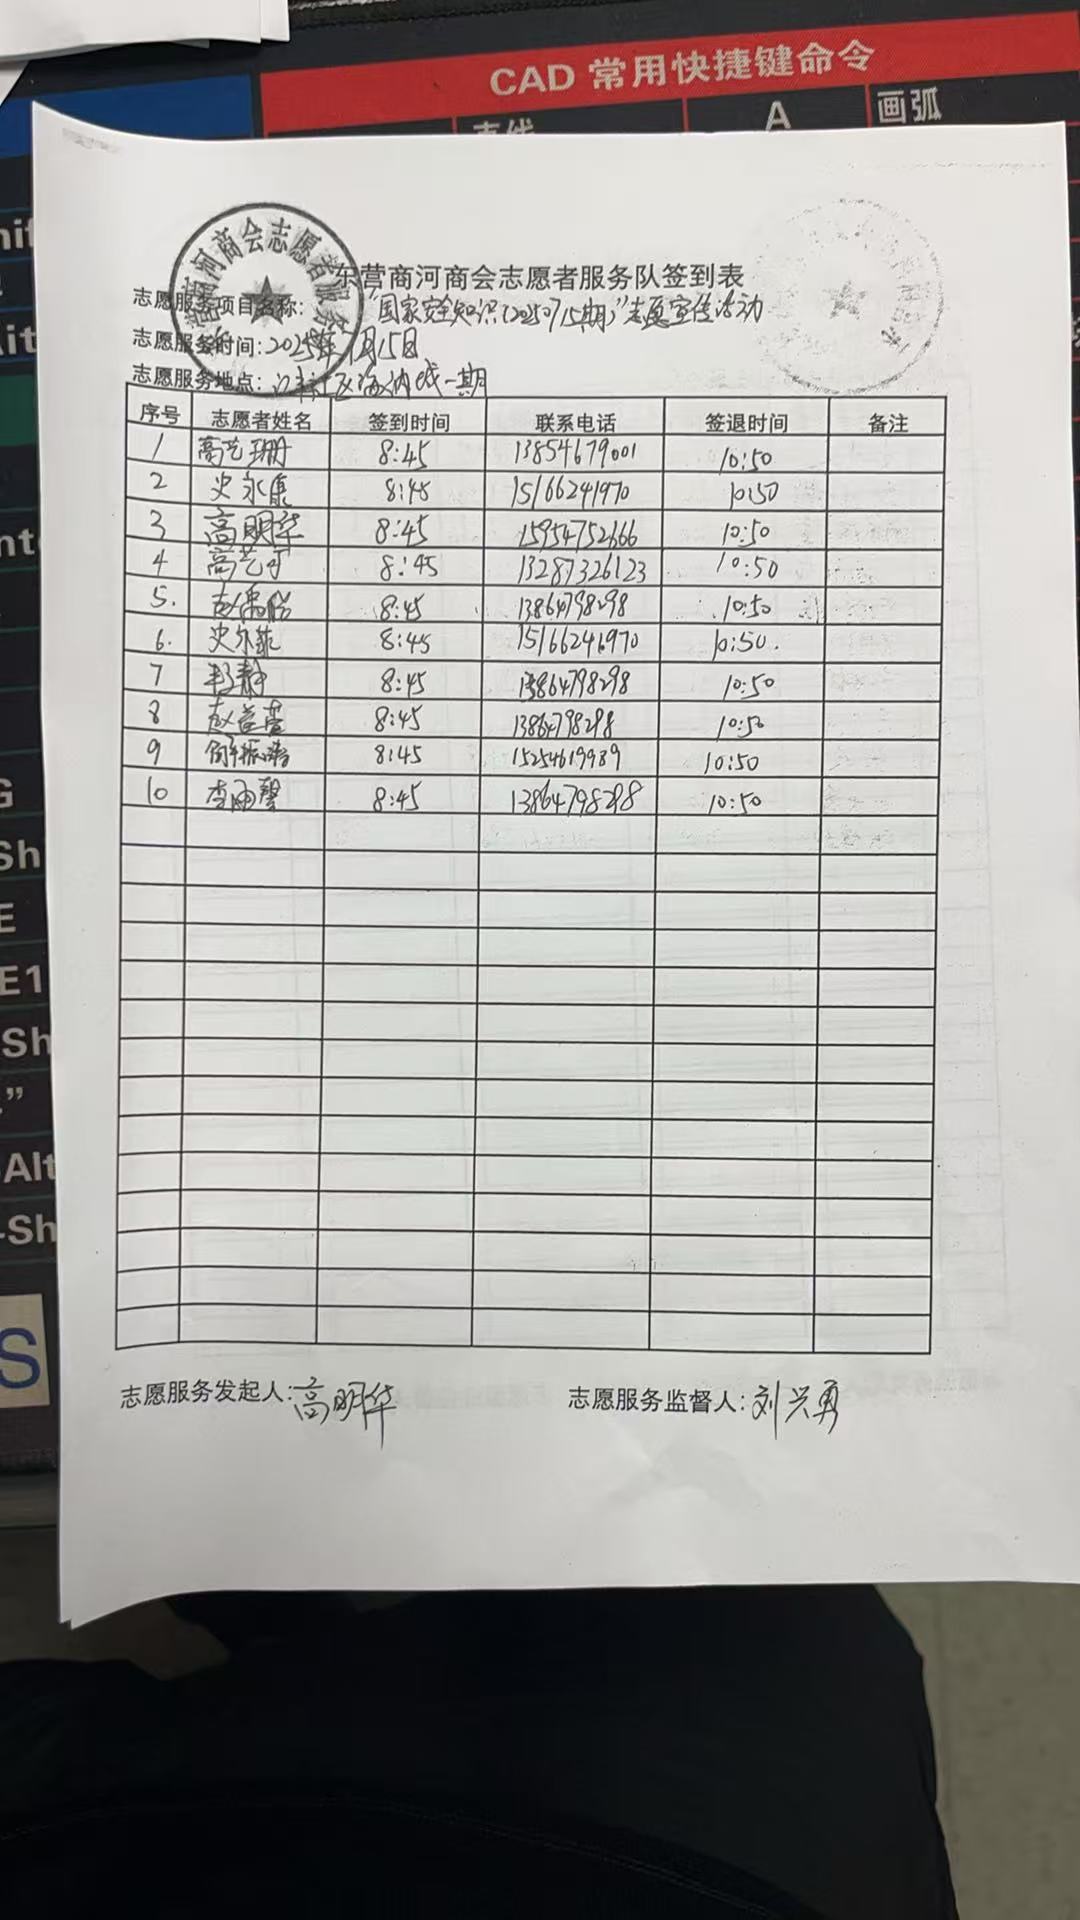 CAD 常用快捷键命令
直线 A 画弧
东营商河商会志愿者服务队签到表
志愿服务项目名称: "国家安全知识(20250715期)"志愿宣传活动
志愿服务时间: 2025年7月15日
志愿服务地点: 社区海纳城一期
序号 志愿者姓名 签到时间 联系电话 签退时间 备注
1 高艺珊 8:45 13854679001 10:50
2 史永康 8:45 15166241970 10:50
3 高明华 8:45 15954752666 10:50
4 高艺于 8:45 13287326123 10:50
5. 赵 8:45 13864798298 10:50
6. 史 8:45 15166241970 10:50.
7 静 8:45 13864798298 10:50
8 赵 8:45 13864798298 10:50
9 振 8:45 15254619989 10:50
10 李雨馨 8:45 13864798298 10:50
志愿服务发起人: 高明华 志愿服务监督人: 刘兴勇
G
Sh
E
E1
Sh
Alt
-Sh
S